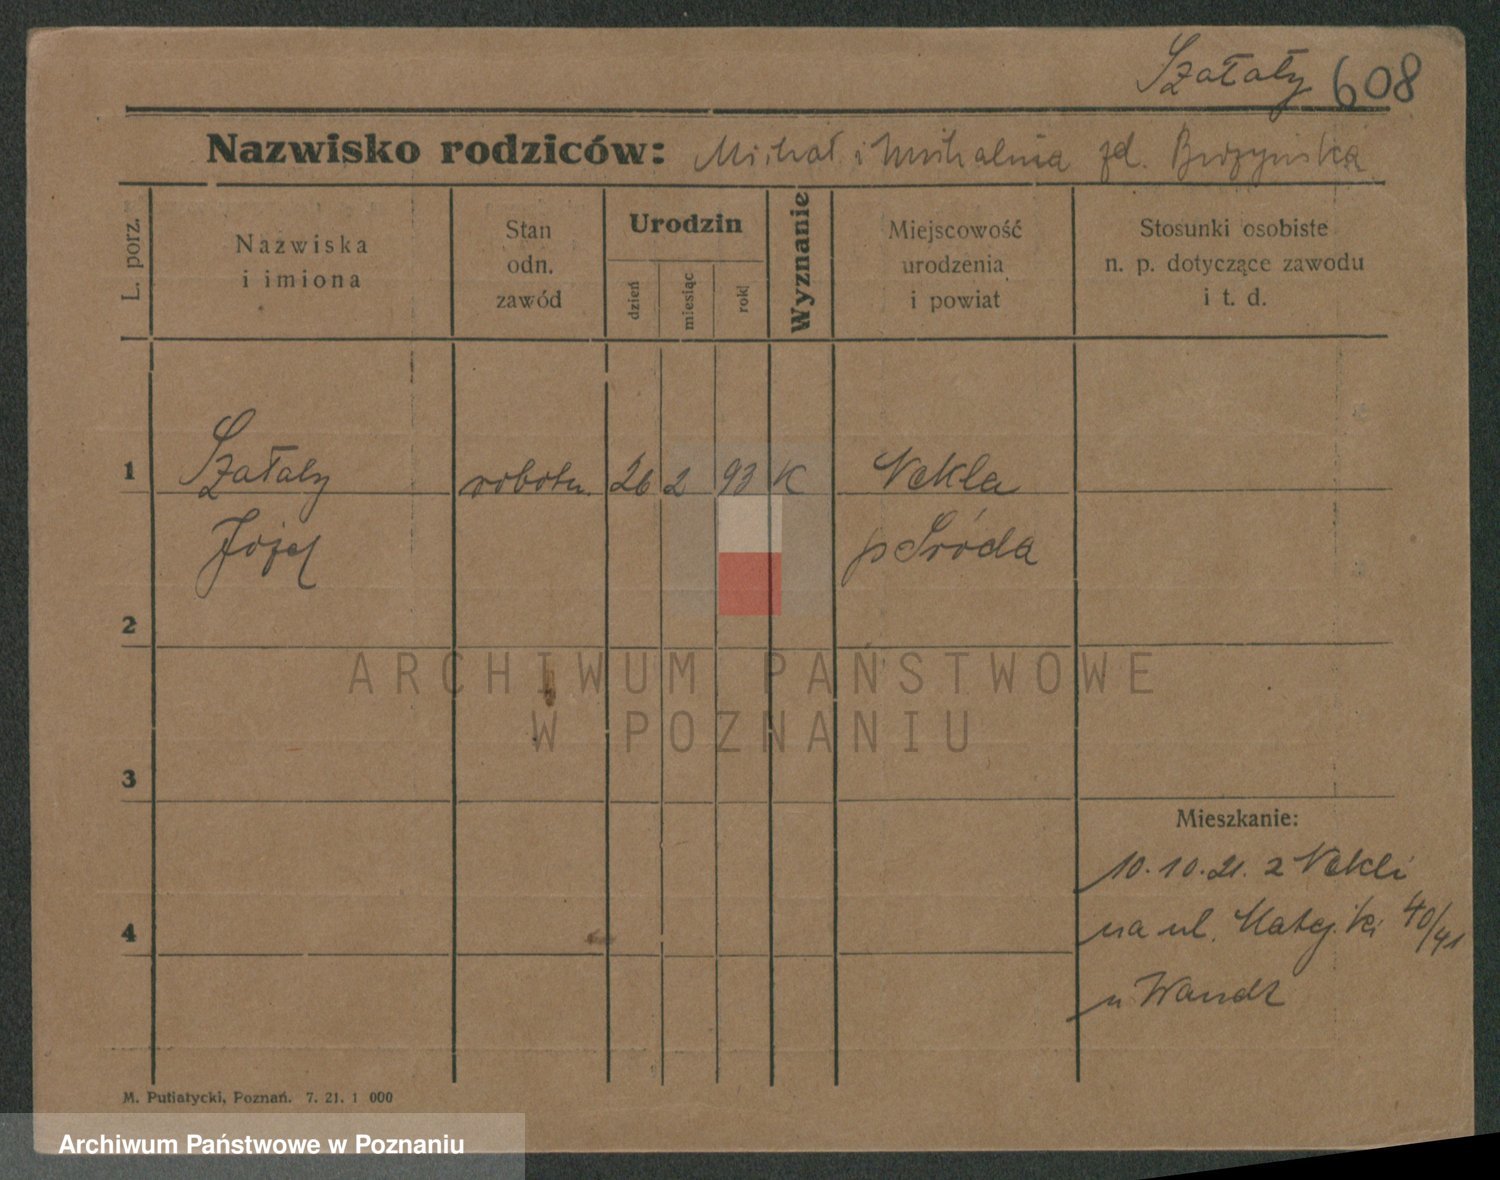 Szałaty 608
Nazwisko rodziców: Michał i Michalina zd. Brzzyńska
L. porz.
Nazwiska
i imiona
Stan
odn.
zawód
Urodzin
dzień
miesiąc
rok
Wyznanie
Miejscowość
urodzenia
i powiat
Stosunki osobiste
n. p. dotyczące zawodu
i t. d.
1 Szałaty robotn. 26 2 93 K Nekla
Józef p Środa
2
ARCHIWUM PAŃSTWOWE
W POZNANIU
3
Mieszkanie:
10.10.21. z Nekli
4 na ul. Matejki 40/41
u Wandt
M. Putiatycki, Poznań. 7. 21. 1 000
Archiwum Państwowe w Poznaniu